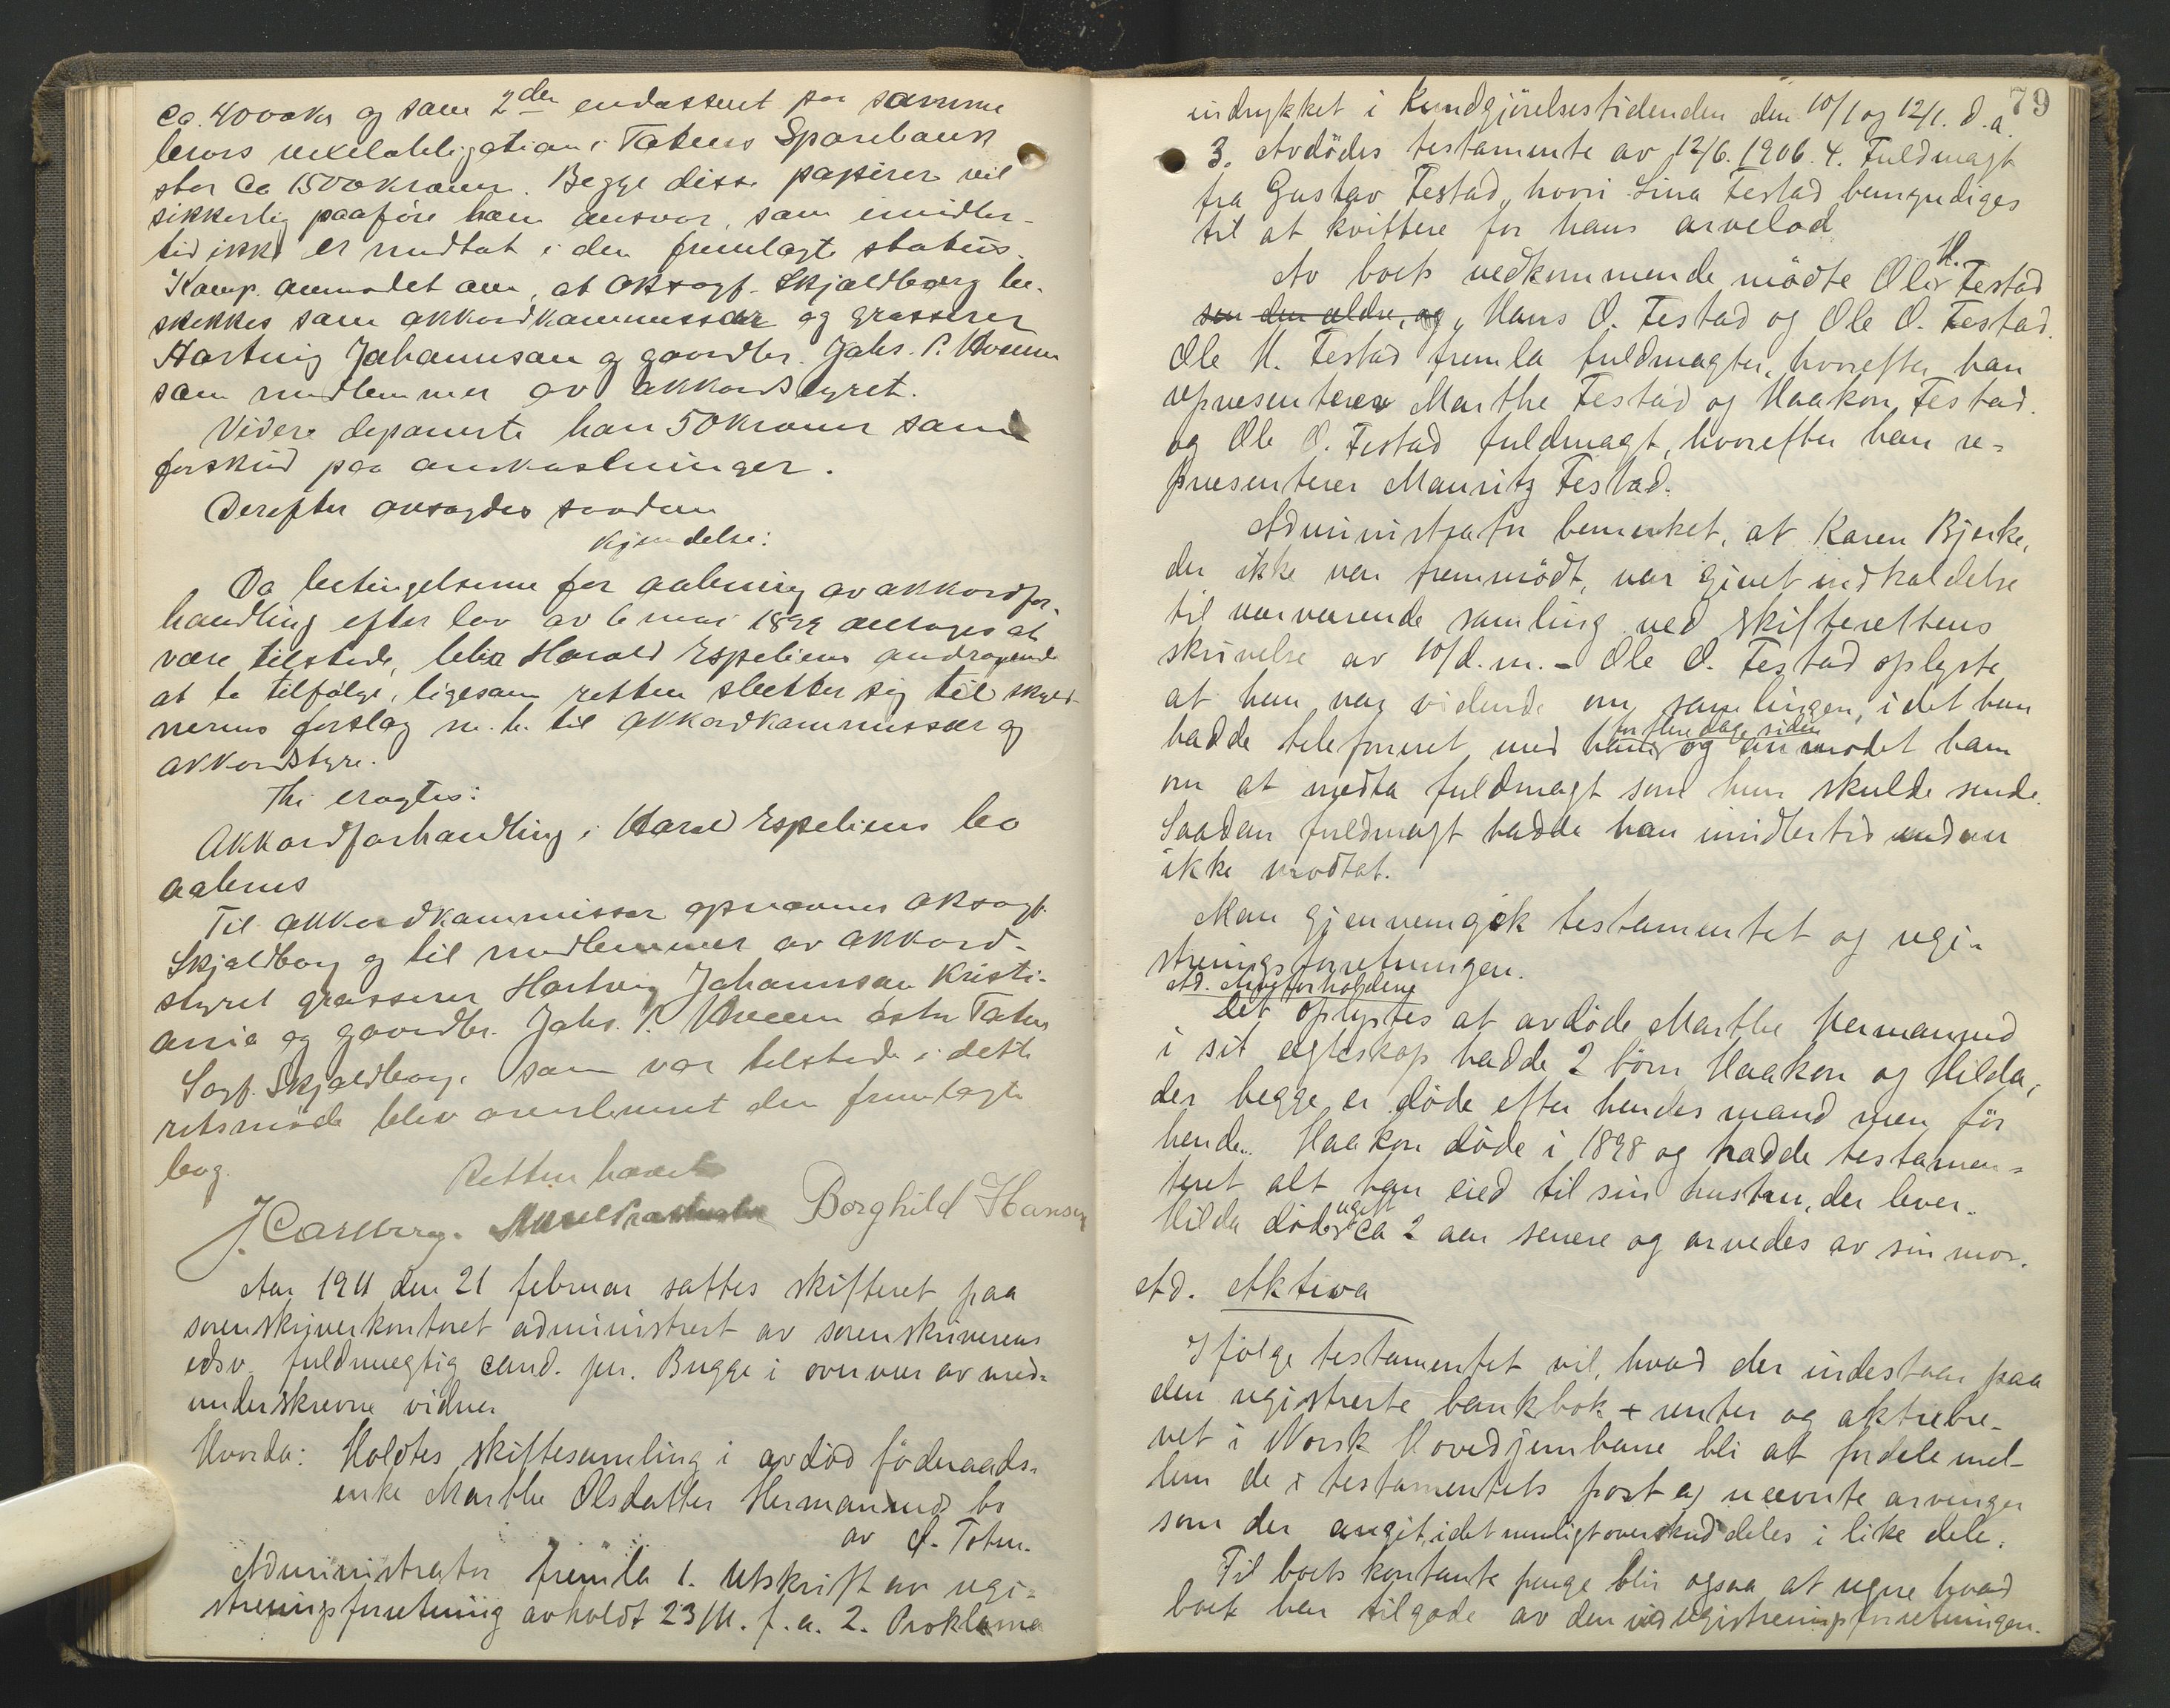 ca. 4000 kr og som 2den endossent paa samme
laans vexelobligation i Totens Sparebank
stor ca 1500 kroner. Begge disse papirer vil
sikkerlig paaføre ham ansvar, som imidler-
tid ikke er medtat i den fremlagte status.
Komp. anmodet om, at oksagf. Skjaldborg be-
skikkes som akkordkommissær og grosserer
Hartvig Johannsen og gaardbr. Johs. P.
som medlemmer av akkordstyret.
Videre deponerte han 50 kroner som
forskud paa omkostninger.
Derefter avsagdes saadan
kjendelse:
Da betingelserne for aabning av akkordfor-
handling efter lov av 6 mai 1899 antages at
være tilstede, blir Harald Espeliens andragende
at ta tilfølge, ligesom retten slutter sig til skyld-
nerens forslag m. h. til akkordkommissær og
akkordstyre.
Thi eragtes:
Akkordforhandling i Harald Espeliens bo
aabnes
Til akkordkommissær opnævnes oksagf.
Skjaldborg og til medlemmer av akkord-
styret grosserer Hartvig Johannsen Kristi-
ania og gaardbr. Johs. P. østre Toten
Sagf. Skjaldborg, som var tilstede i dette
retsmøde blev overlevert den fremlagte
bog.
Retten hævet
J. Carlberg. Borghild Hansen
Aar 1911 den 21 februar sattes skifteret paa
sorenskriverkontoret administrert av sorenskriverens
edsv. fuldmægtig cand. jur. Bugge i overvær av med-
underskrevne vidner
Hvorda: Holdtes skiftesamling i avdød føderaads-
enke Marthe Olsdatter Hermanruds bo
av Ø. Toten.
Administrator fremla 1. Utskrift av regi-
streringsforretning avholdt 23/11. f.a. 2. Proklama
79
indrykket i Kundgjörelsestidenden den 10/1 og 12/1. d.a.
3. Avdödes testamente av 12/6. 1906. 4. Fuldmagt
fra Gustav Festad, hvori Lina Festad bemyndiges
til at kvittere for hans arvelod
H.
Av boets vedkommende mödte Ole Festad
sen den ældre, og Hans O. Festad og Ole O. Festad.
Ole H. Festad fremla fuldmagter, hvorefter han
representerer Marthe Festad og Haakon Festad.
og Ole O. Festad fuldmagt, hvorefter han re-
præsenterer Mauritz Festad.
Administrator bemerket, at Karen Bjerke,
der ikke var fremmödt, var givet indkaldelse
til nærværende samling ved skifterettens
skrivelse av 10/d.m. - Ole O. Festad oplyste
at hun var vidende om samlingen, idet hun
for flere dage siden
hadde telefonert med ham og anmodet ham
om at motta fuldmagt som hun skulde sende.
Saadan fuldmagt hadde han imidlertid endnu
ikke modtat.
Man gjennemgik testamentet og regi-
streringsforretningen.
Ad. Arveforholdene
Det oplystes at avdöde Marthe Hermanrud
i sit egteskap hadde 2 börn Haakon og Hilda,
der begge er döde efter hendes mand men för
hende. Haakon döde i 1898 og hadde testamen-
teret alt han eied til sin hustru, der lever.
ugift
Hilda döde ca 2 aar senere og arvedes av sin mor.
Ad. Aktiva
Ifölge testamentet vil, hvad der indestaar paa
den registrerte bankbok + renter og aktiebre-
vet i Norsk Hovedjernbane bli at fordele mel-
lem de i testamentets post a) nævnte arvinger
som der angit, idet muligt overskud deles i like dele.
Til boets kontante penge blir ogsaa at regne hvad
boet har tilgode av den ved registreringsforretningen.